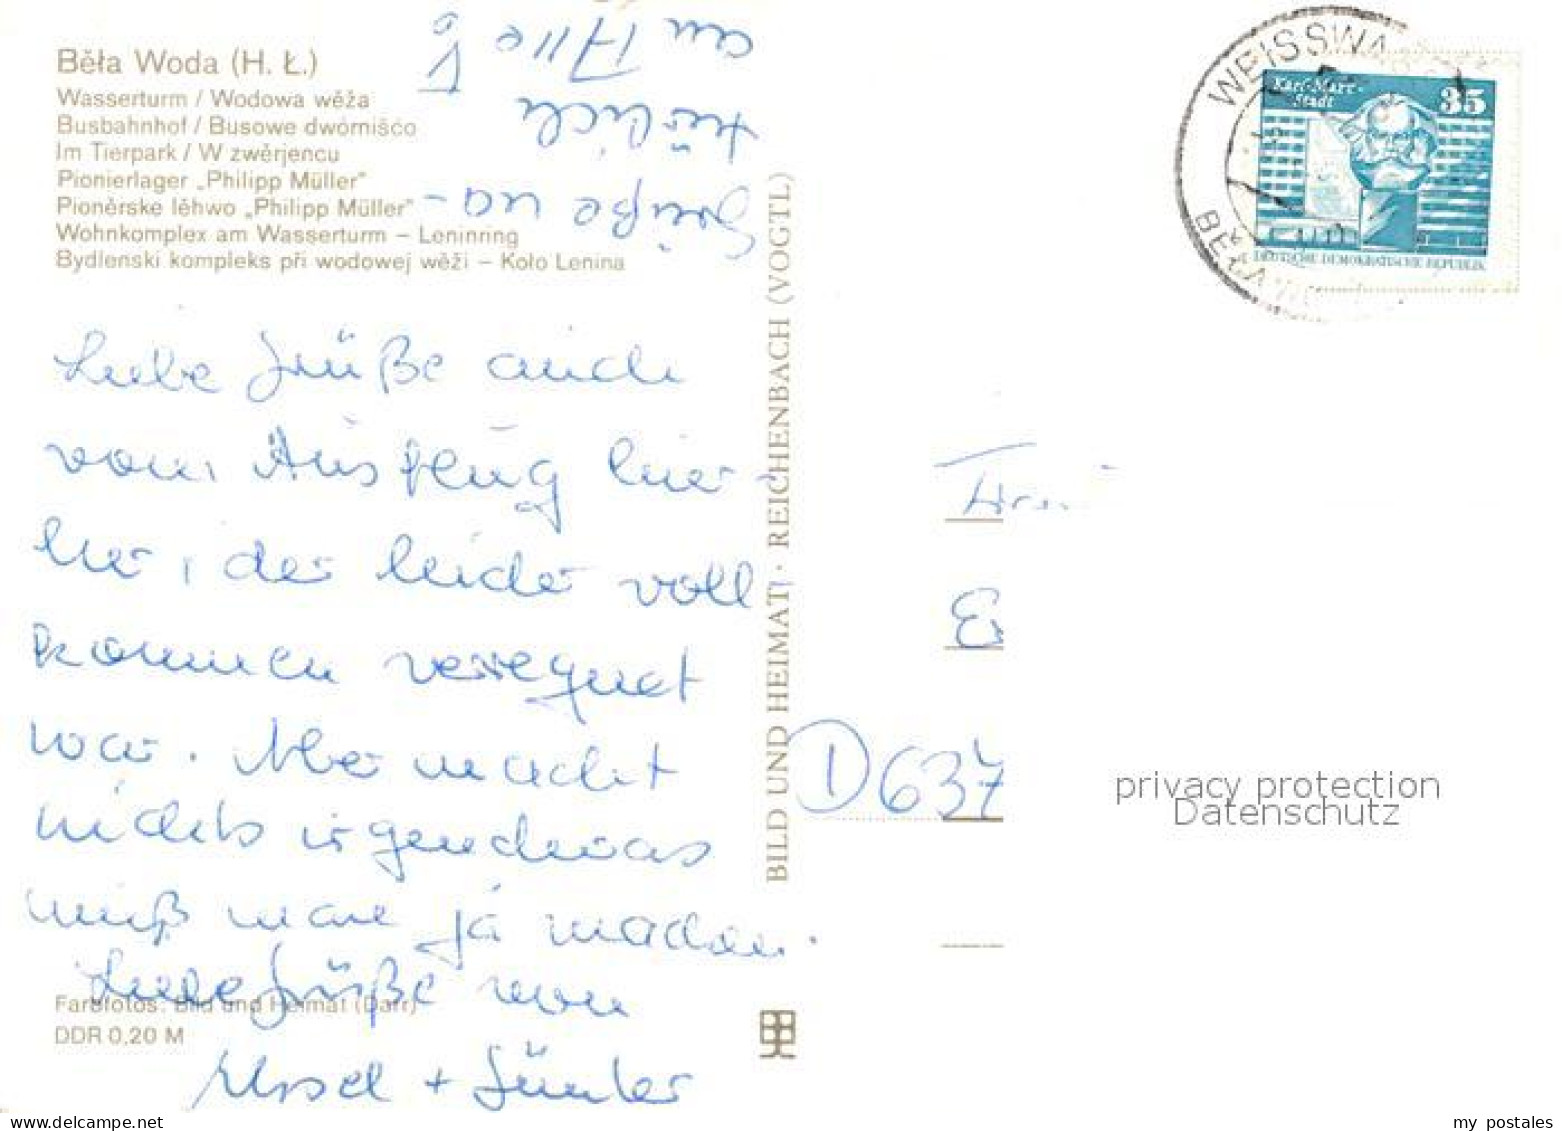 Běła Woda (H. Ł.)
Wasserturm / Wodowa wěža
Busbahnhof / Busowe dwórnišćo
Im Tierpark / W zwěrjencu
Pionierlager „Philipp Müller"
Pioněrske lěhwo „Philipp Müller"
Wohnkomplex am Wasserturm – Leninring
Bydlenski kompleks při wodowej wěži – Koło Lenina
Grüße na-
türlich
an
Liebe Grüße auch
vom Ausflug hier-
her, der leider voll
kommen verregnet
war. Aber macht
nichts irgendwas
muß man ja machen.
Liebe Grüße von
+ Günter
Farbfotos: Bild und Heimat (Darr)
DDR 0,20 M
BILD UND HEIMAT · REICHENBACH (VOGTL)
WEISSWA
BEŁA W
Karl-Marx-
Stadt
35
DEUTSCHE DEMOKRATISCHE REPUBLIK
E
D 637
privacy protection
Datenschutz
Delcampe.net
my_postales